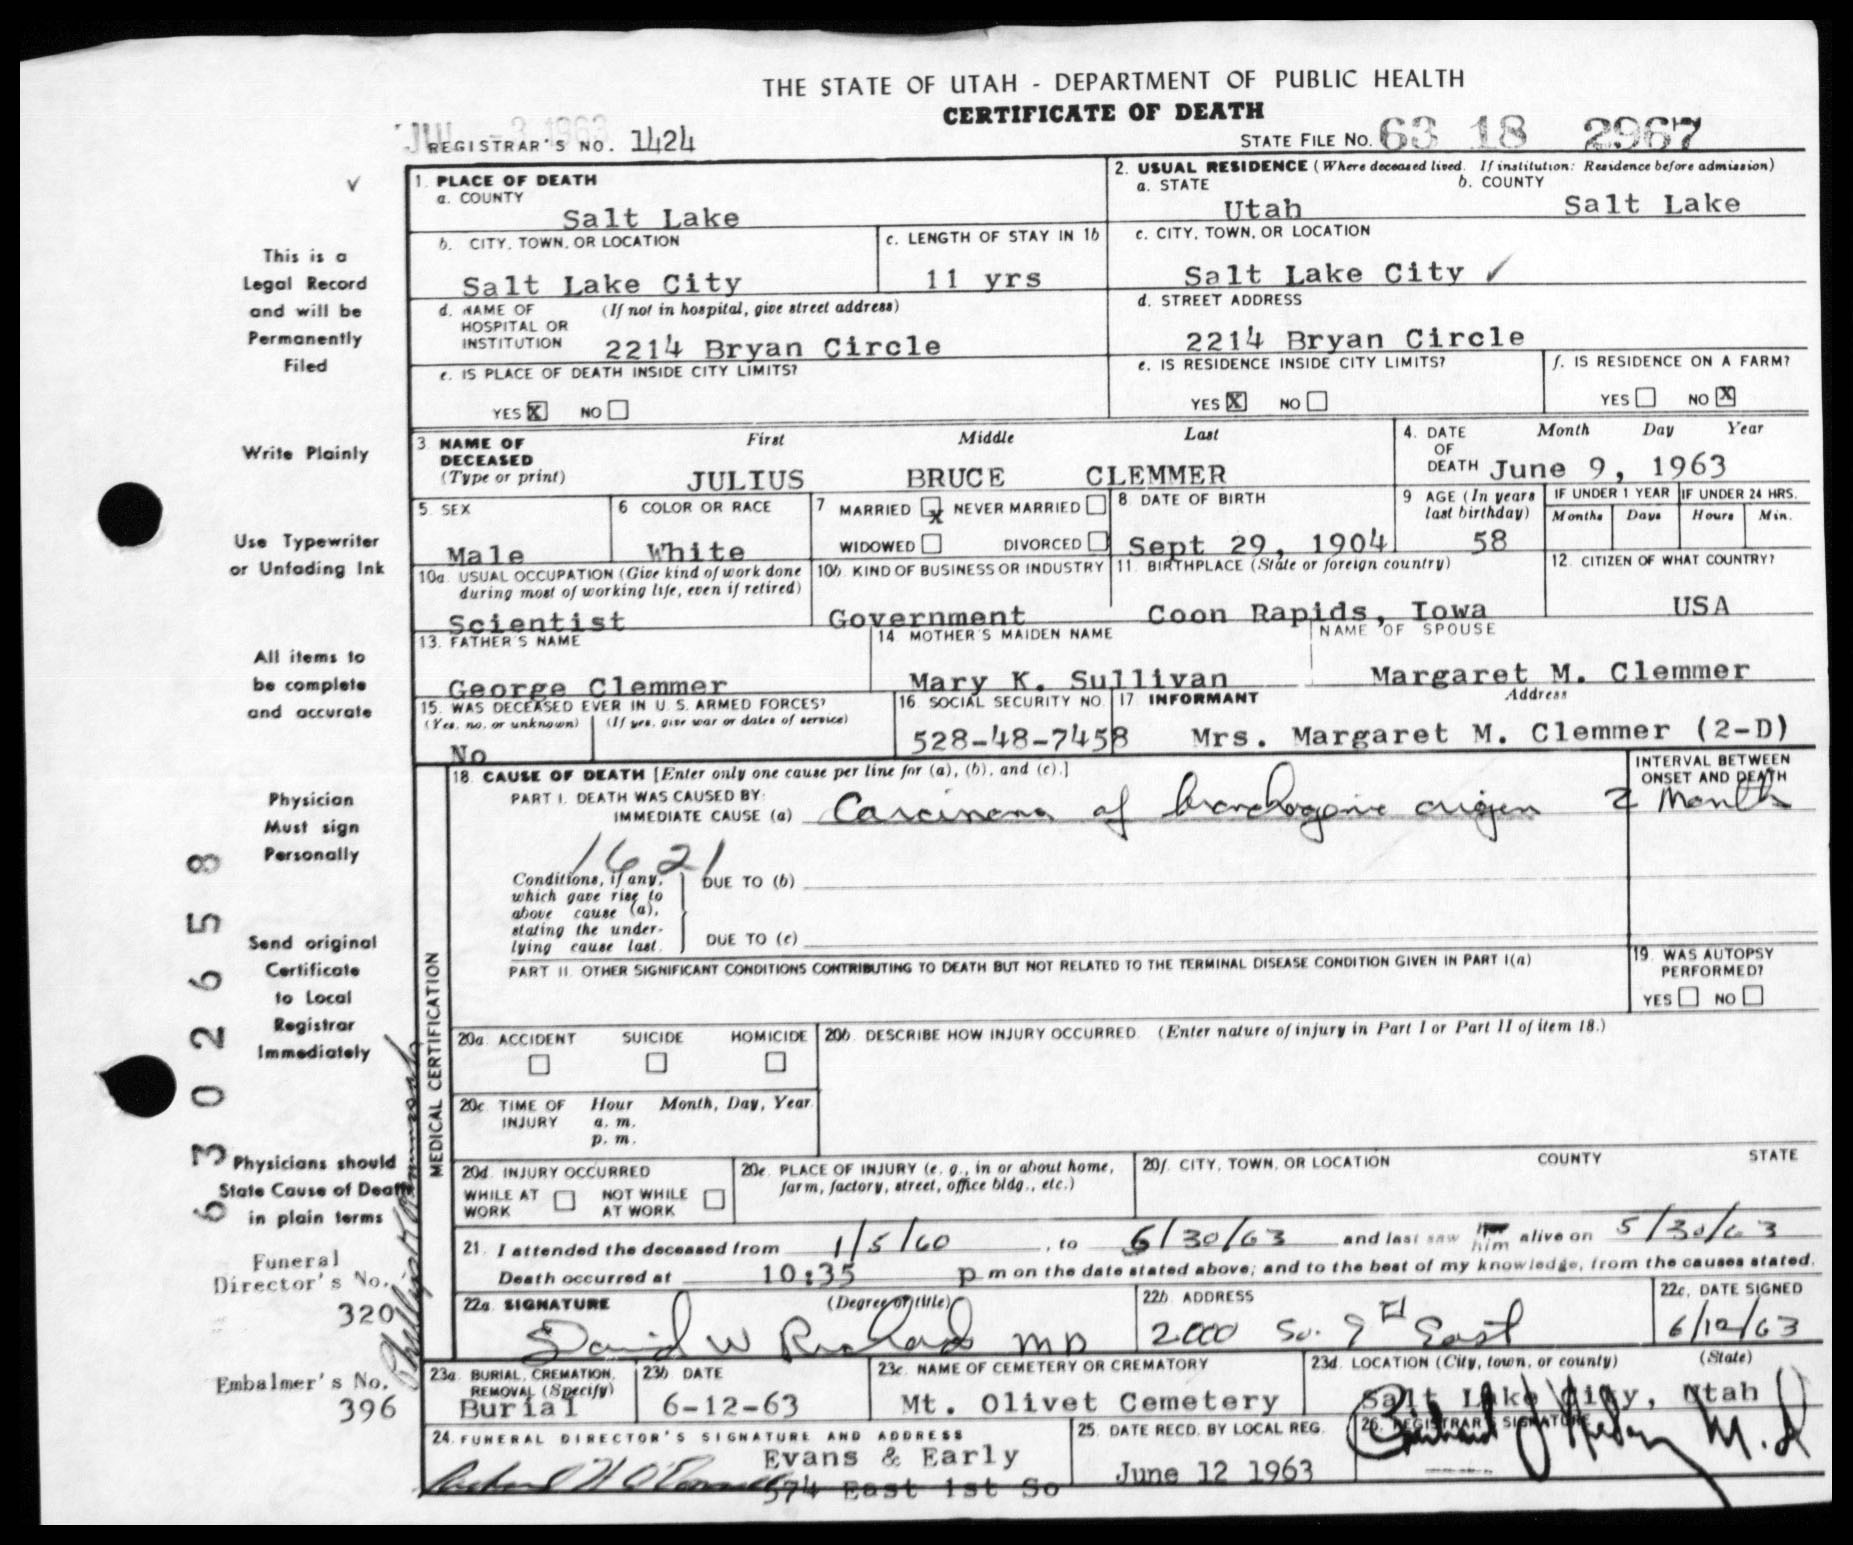 THE STATE OF UTAH - DEPARTMENT OF PUBLIC HEALTH
CERTIFICATE OF DEATH
JUL -3 1963
REGISTRAR'S NO. 1424
STATE FILE NO. 63 18 2967
This is a
Legal Record
and will be
Permanently
Filed
Write Plainly
Use Typewriter
or Unfading Ink
All items to
be complete
and accurate
Physician
Must sign
Personally
Send original
Certificate
to Local
Registrar
Immediately
Physicians should
State Cause of Death
in plain terms
Funeral
Director's No.
320
Embalmer's No.
396
63026558
1. PLACE OF DEATH
a. COUNTY
Salt Lake
2. USUAL RESIDENCE (Where deceased lived. If institution: Residence before admission)
a. STATE b. COUNTY
Utah Salt Lake
b. CITY, TOWN, OR LOCATION
Salt Lake City
c. LENGTH OF STAY IN 1b
11 yrs
c. CITY, TOWN, OR LOCATION
Salt Lake City ✓
d. NAME OF (If not in hospital, give street address)
HOSPITAL OR
INSTITUTION 2214 Bryan Circle
d. STREET ADDRESS
2214 Bryan Circle
e. IS PLACE OF DEATH INSIDE CITY LIMITS?
YES X NO
e. IS RESIDENCE INSIDE CITY LIMITS?
YES X NO
f. IS RESIDENCE ON A FARM?
YES NO X
3. NAME OF First Middle Last
DECEASED
(Type or print) JULIUS BRUCE CLEMMER
4. DATE Month Day Year
OF
DEATH June 9, 1963
5. SEX
Male
6 COLOR OR RACE
White
7 MARRIED X NEVER MARRIED
WIDOWED DIVORCED
8 DATE OF BIRTH
Sept 29, 1904
9 AGE (In years
last birthday)
58
IF UNDER 1 YEAR IF UNDER 24 HRS.
Months Days Hours Min.
10a. USUAL OCCUPATION (Give kind of work done
during most of working life, even if retired)
Scientist
10b. KIND OF BUSINESS OR INDUSTRY
Government
11. BIRTHPLACE (State or foreign country)
Coon Rapids, Iowa
12. CITIZEN OF WHAT COUNTRY?
USA
13. FATHER'S NAME
George Clemmer
14. MOTHER'S MAIDEN NAME
Mary K. Sullivan
NAME OF SPOUSE
Margaret M. Clemmer
15. WAS DECEASED EVER IN U. S. ARMED FORCES?
(Yes, no, or unknown) (If yes, give war or dates of service)
No
16. SOCIAL SECURITY NO.
528-48-7458
17 INFORMANT Address
Mrs. Margaret M. Clemmer (2-D)
MEDICAL CERTIFICATION
18. CAUSE OF DEATH [Enter only one cause per line for (a), (b), and (c).]
INTERVAL BETWEEN
ONSET AND DEATH
PART I. DEATH WAS CAUSED BY:
IMMEDIATE CAUSE (a) Carcinoma of bronchogenic origin 2 Months
1621
Conditions, if any,
which gave rise to
above cause (a),
stating the under-
lying cause last.
DUE TO (b)
DUE TO (c)
PART II. OTHER SIGNIFICANT CONDITIONS CONTRIBUTING TO DEATH BUT NOT RELATED TO THE TERMINAL DISEASE CONDITION GIVEN IN PART I(a)
19. WAS AUTOPSY
PERFORMED?
YES NO
20a. ACCIDENT SUICIDE HOMICIDE
20b. DESCRIBE HOW INJURY OCCURRED. (Enter nature of injury in Part I or Part II of item 18.)
20c. TIME OF Hour Month, Day, Year
INJURY a. m.
p. m.
20d. INJURY OCCURRED
WHILE AT WORK NOT WHILE AT WORK
20e. PLACE OF INJURY (e. g., in or about home,
farm, factory, street, office bldg., etc.)
20f. CITY, TOWN, OR LOCATION COUNTY STATE
21. I attended the deceased from 1/5/60, to 5/30/63 and last saw him alive on 5/30/63
Death occurred at 10:35 p m on the date stated above; and to the best of my knowledge, from the causes stated.
22a. SIGNATURE (Degree or title)
David W Richards MD
22b. ADDRESS
2000 So. 9th East
22c. DATE SIGNED
6/12/63
23a. BURIAL, CREMATION,
REMOVAL (Specify)
Burial
23b. DATE
6-12-63
23c. NAME OF CEMETERY OR CREMATORY
Mt. Olivet Cemetery
23d. LOCATION (City, town, or county) (State)
Salt Lake City, Utah
24. FUNERAL DIRECTOR'S SIGNATURE AND ADDRESS
Evans & Early
574 East 1st So
25. DATE RECD. BY LOCAL REG.
June 12 1963
26. REGISTRAR'S SIGNATURE
M. D